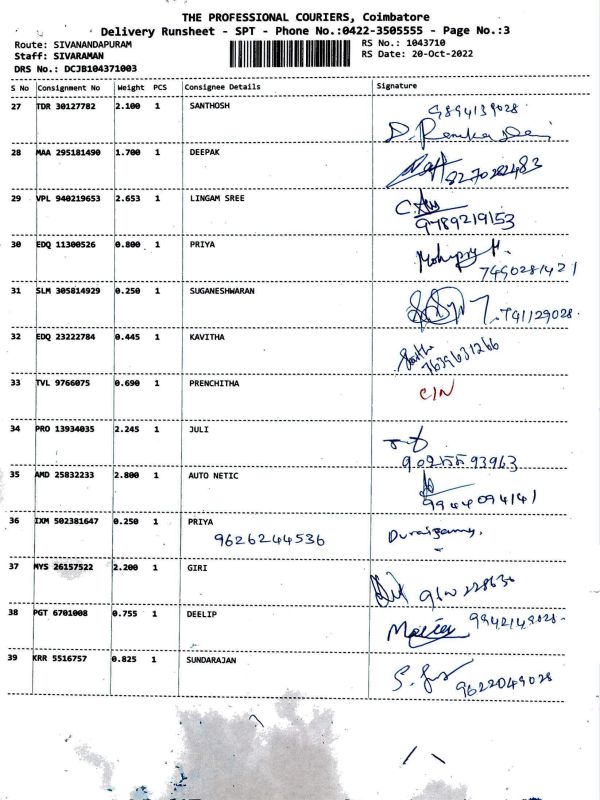 THE PROFESSIONAL COURIERS, Coimbatore
Delivery Runsheet - SPT - Phone No.:0422-3505555 - Page No.:3
Route: SIVANANDAPURAM
RS No.: 1043710
Staff: SIVARAMAN
RS Date: 20-Oct-2022
DRS No.: DCJB104371003
S No Consignment No Weight PCS Consignee Details Signature
27 TDR 30127782 2.100 1 SANTHOSH
9894139028
28 MAA 295181490 1.700 1 DEEPAK
8270282483
29 VPL 940219653 2.653 1 LINGAM SREE
9789219153
30 EDQ 11300526 0.800 1 PRIYA
7490281421
31 SLM 305814929 0.250 1 SUGANESHWARAN
741129028
32 EDQ 23222784 0.445 1 KAVITHA
7639631266
33 TVL 9766075 0.690 1 PRENCHITHA
C/N
34 PRO 13934035 2.245 1 JULI
35 AMD 25832233 2.800 1 AUTO NETIC
9944094141
36 IXM 502381647 0.250 1 PRIYA
9626244536
37 MYS 26157522 2.200 1 GIRI
38 PGT 6701008 0.755 1 DEELIP
9942149028
39 KRR 5516757 0.825 1 SUNDARAJAN
9622049028